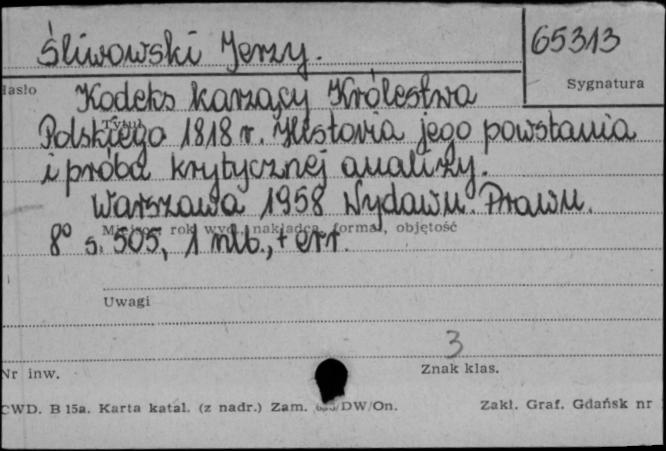 Śliwowski Jerzy.
65313
Hasło
Sygnatura
Kodeks karzący Królestwa
Tytuł
Polskiego 1818 r. Historia jego powstania
i próba krytycznej analizy.
Warszawa 1958 Wydawn. Prawn.
Miejsce, rok wyd., nakładca, format, objętość
8° s. 505, 1 nlb., + err.
Uwagi
3
Nr inw.
Znak klas.
CWD. B 15a. Karta katal. (z nadr.) Zam. /DW/On.
Zakł. Graf. Gdańsk nr